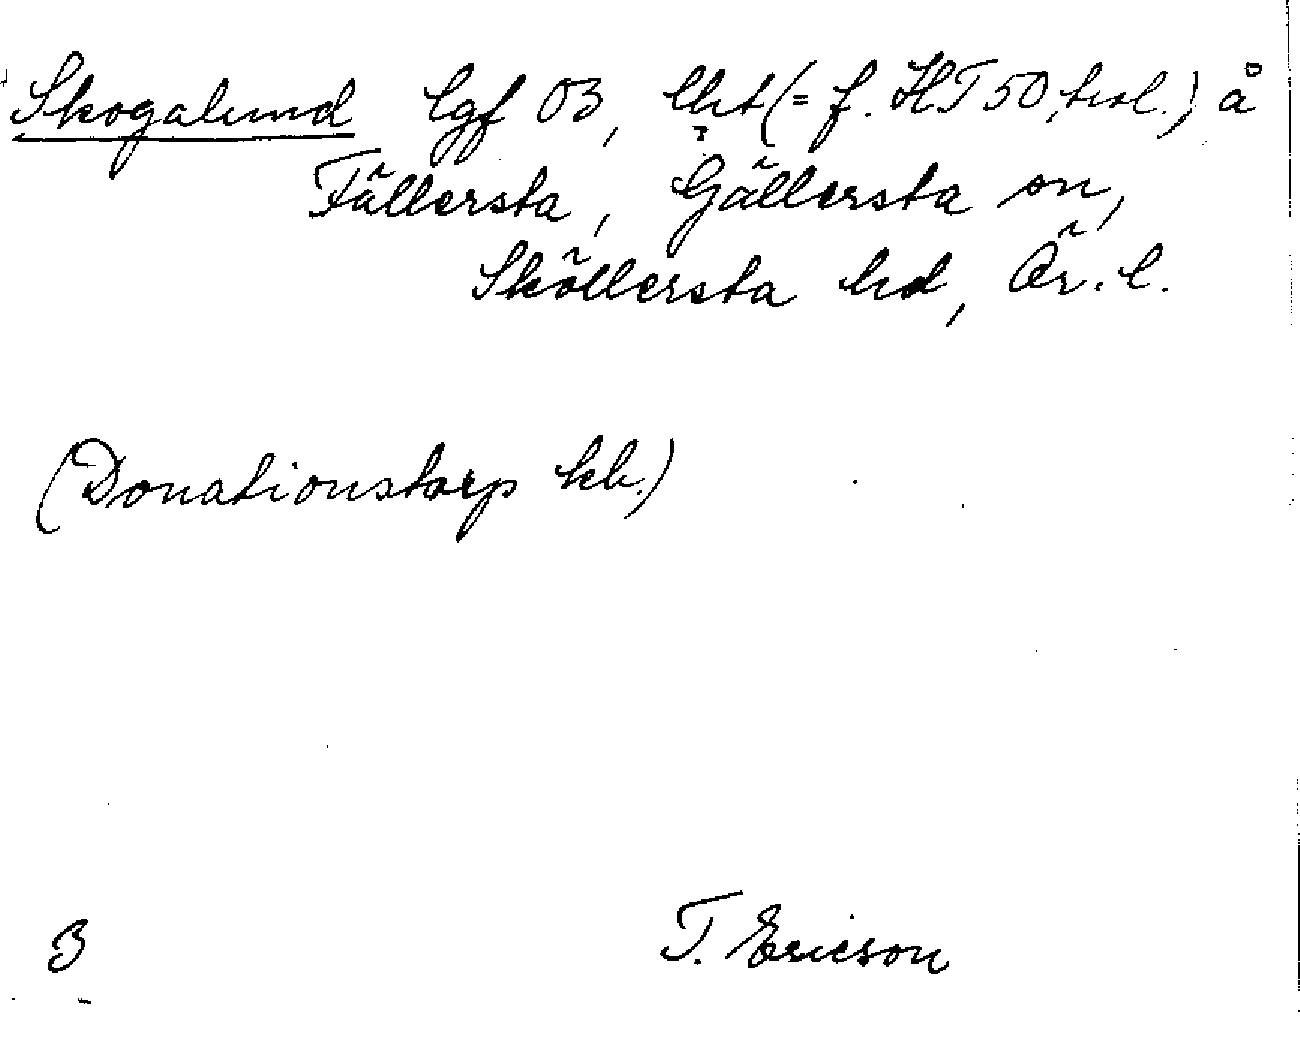 Skogalund lgf 03, lht (= f. HT 50, trol.) å
Fällersta, Gällersta sn,
Sköllersta hd, Ör. l.
(Donationstorp kb.)
3
T. Ericson